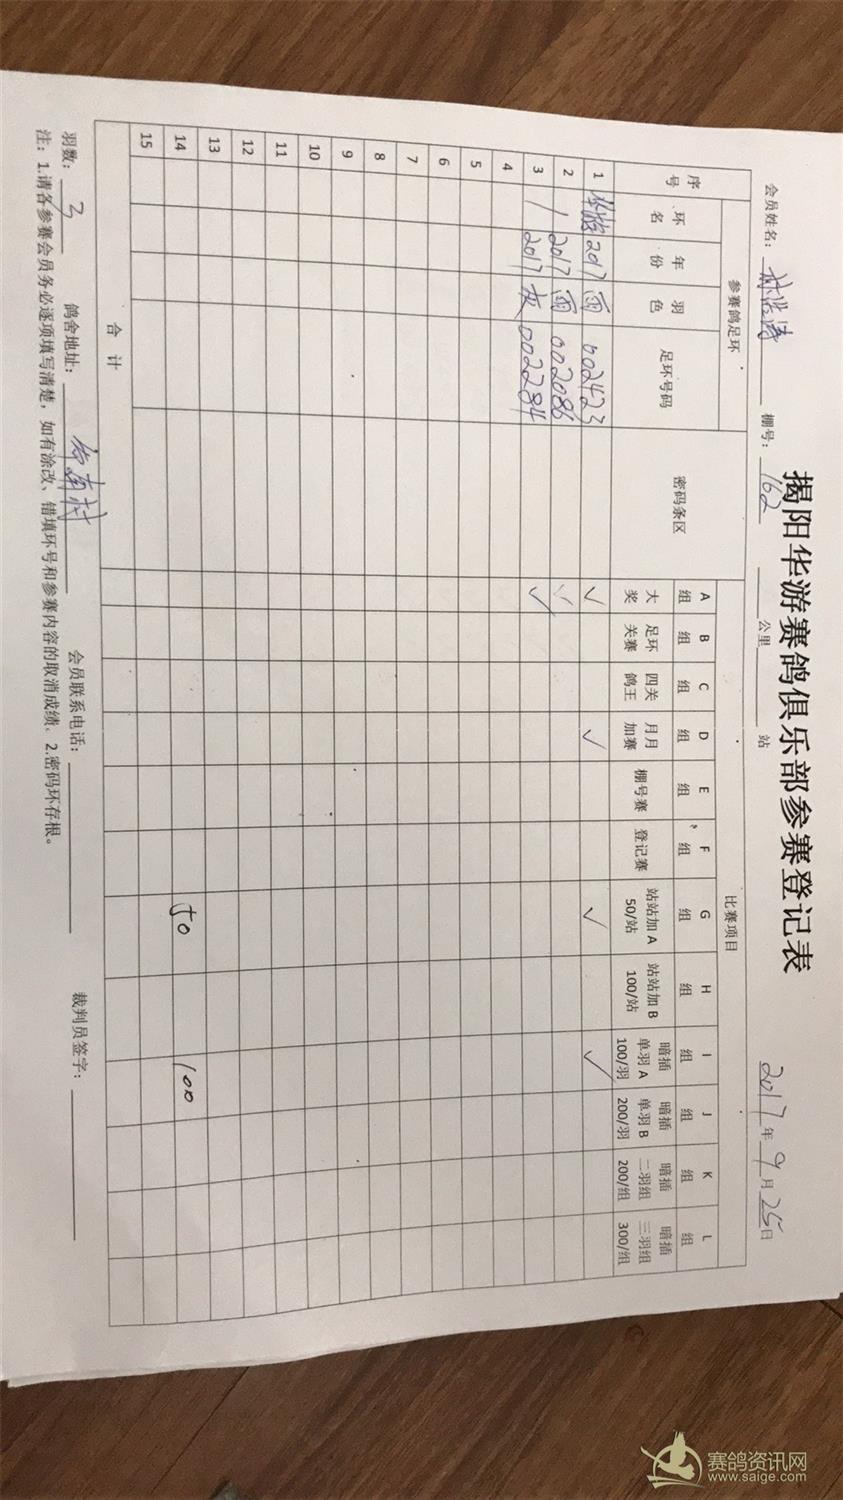 揭阳华游赛鸽俱乐部参赛登记表
会员姓名： 棚号：162 公里 站 2017年9月25日
序号 参赛鸽足环 密码条区 比赛项目
环名 年份 羽色 足环号码 A组 B组 C组 D组 E组 F组 G组 H组 I组 J组 K组 L组
大奖 足环关赛 四关鸽王 月月加赛 棚号赛 登记赛 站站加A 50/站 站站加B 100/站 暗插单羽A 100/羽 暗插单羽B 200/羽 暗插二羽组 200/组 暗插三羽组 300/组
1 华游 2017 雨 002423 ✓ ✓ ✓ ✓
2 / 2017 雨 002086 ✓
3 / 2017 灰 002284 ✓
4
5
6
7
8
9
10
11
12
13
14 50 100
15
合计
羽数：3 鸽舍地址： 南村 会员联系电话： 裁判员签字：
注：1.请各参赛会员务必逐项填写清楚，如有涂改、错填环号和参赛内容的取消成绩。2.密码环存根。
赛鸽资讯网
www.saige.com